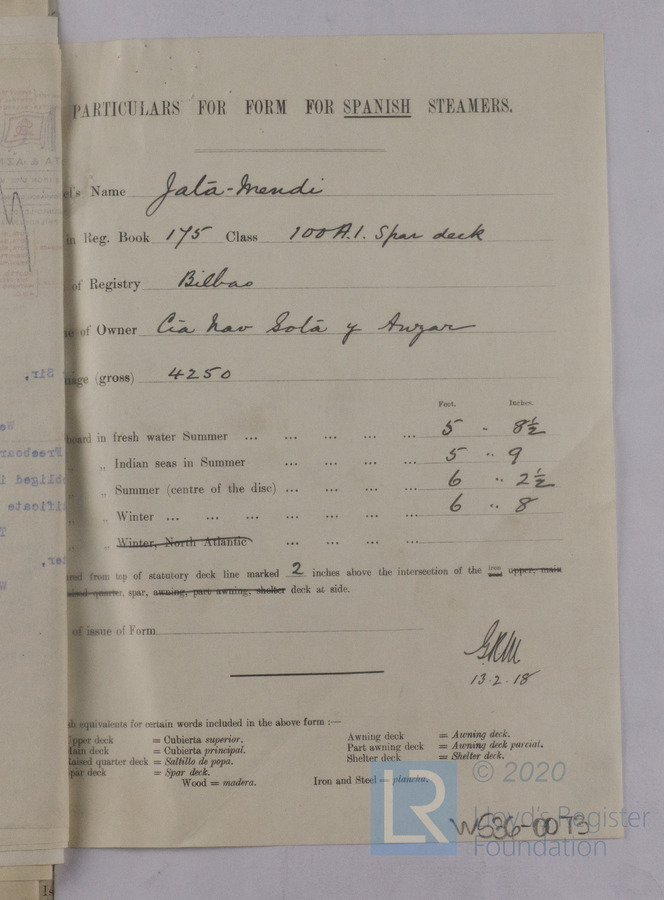 PARTICULARS FOR FORM FOR SPANISH STEAMERS.
el's Name Jata-Mendi
in Reg. Book 175 Class 100A.1. Spar deck
of Registry Bilbao
of Owner Cia Nav Sota y Aznar
age (gross) 4250
Feet. Inches.
board in fresh water Summer ... ... ... ... 5 " 8½
„ „ Indian seas in Summer ... ... ... 5 " 9
„ „ Summer (centre of the disc) ... ... ... ... 6 " 2½
„ „ Winter ... ... ... ... ... ... 6 " 8
„ „ Winter, North Atlantic ... ... ... ...
red from top of statutory deck line marked 2 inches above the intersection of the iron upper, main
raised quarter, spar, awning, part awning, shelter deck at side.
of issue of Form
GRM
13.2.18
sh equivalents for certain words included in the above form :—
Upper deck = Cubierta superior.
Main deck = Cubierta principal.
Raised quarter deck = Saltillo de popa.
Spar deck = Spar deck.
Awning deck = Awning deck.
Part awning deck = Awning deck parcial.
Shelter deck = Shelter deck.
Wood = madera. Iron and Steel = plancha.
LR
© 2020
Lloyd's Register
Foundation
W536-0073